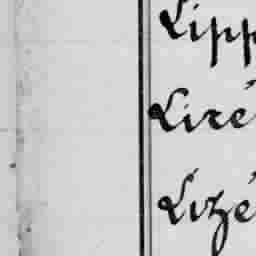 Lipp
Liré
Lizé